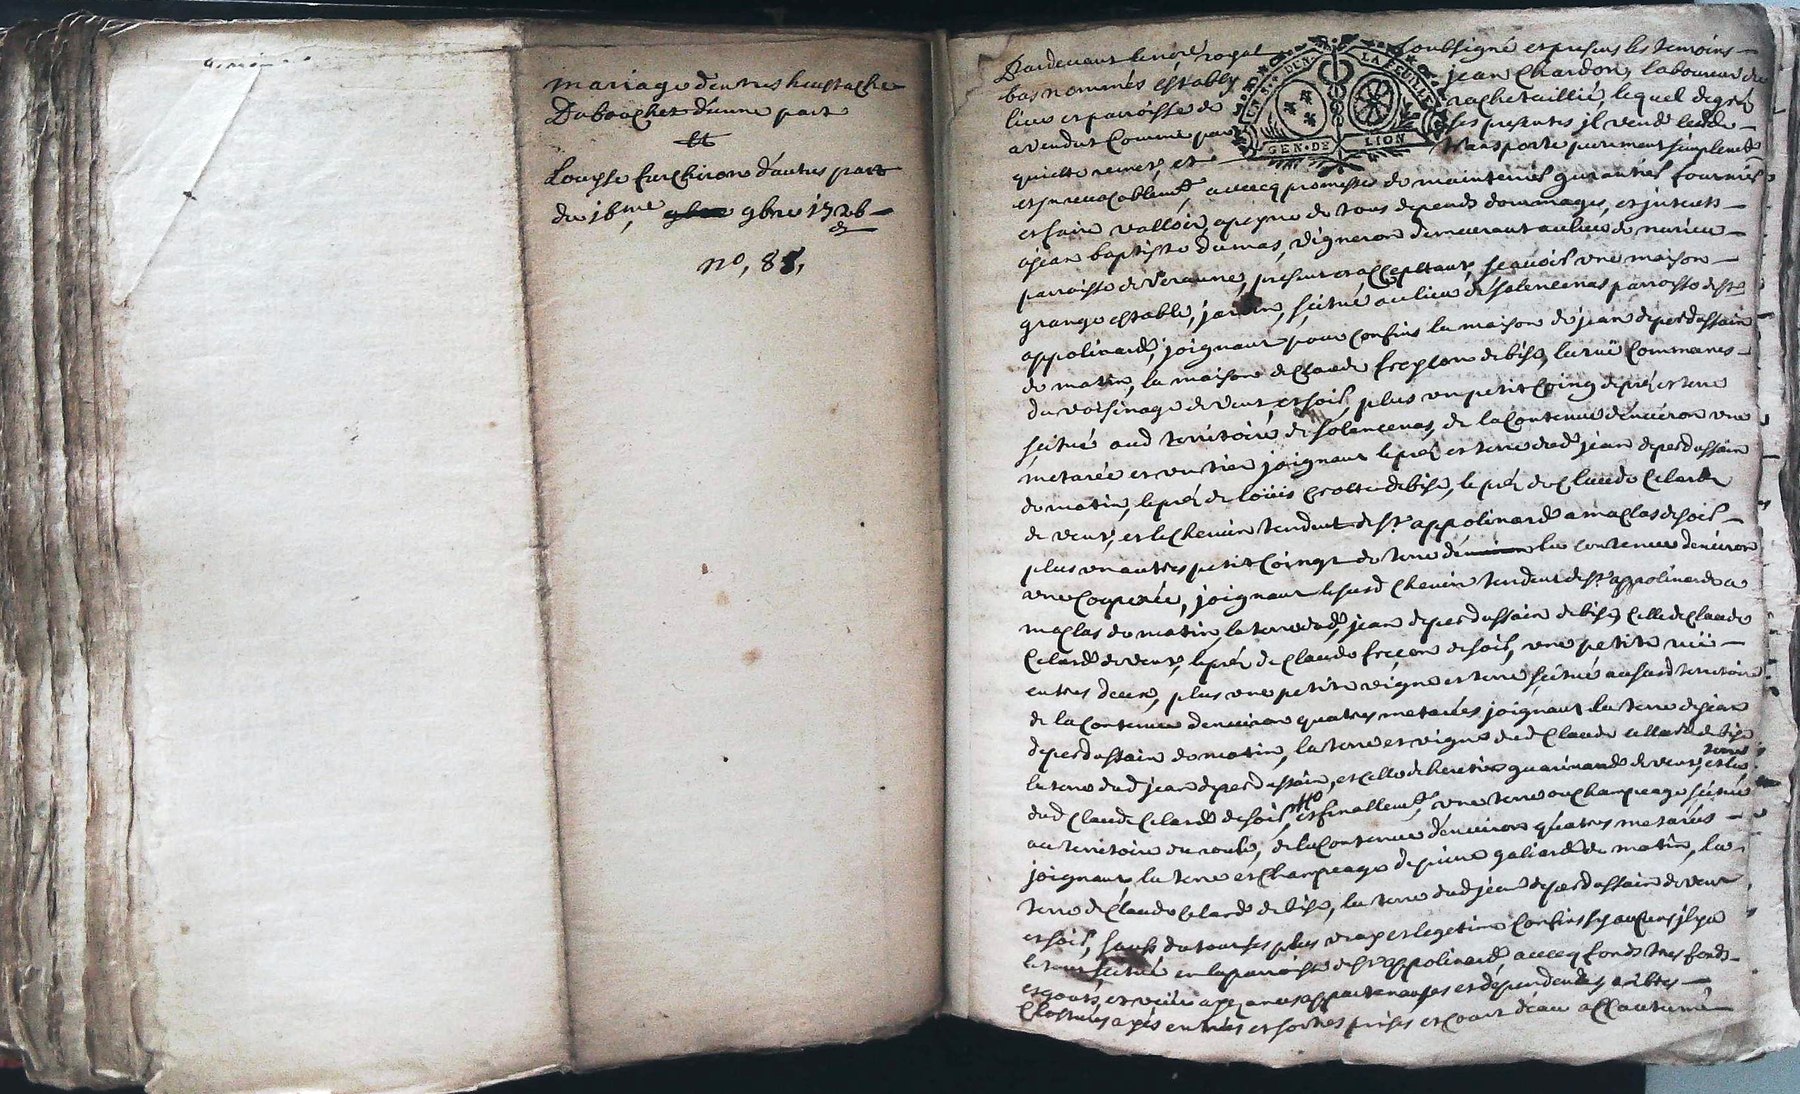 mariage d'entres heustache
Dubouchet d'une part
et
Louyse furchiron d'autres part
du 16me 9bre 1726
no, 85,
UN S. DEN. LA FEUILLE
GEN. DE LION
Pardevant le nore royal soubsigné et presens les temoins
bas nommés estably jean Chardon, laboureur du
lieu et parroisse de rochetaillié, lequel de gré
a vendut comme par ses presentes il vend cedde
quicte remet, et transporte purement simplemt
et jrrevocablemt, avecq promesse de maintenir garantir fournir
et faire valloir, a peyne de tous depends dommages, et jnterets
a jean baptiste dumas, vigneron demeurant au lieu de
parroisse de veranne, present et acceptant, scavoir une maison
grange estable, jardin, scitué au lieu de solencenas parroisse de st
appolinard, joignant pour confins la maison de jean deperdussain
de matin, la maison de Claude freyson de bise, la rue
du voisinage de vent, et soir, plus un petit Coing de pré et terre
scitué aud territoire de solencenas, de la Contenue d'environ une
metarée et un tier joignant le pré et terre dud jean deperdussain
de matin, le pré de loüis de bise, le pré de Claude Celard
de vent, et le Chemin tendent de st appolinard a maclas de soir
plus un autres petit Coingt de terre de la contenue denviron
une Couperée, joignant le susd Chemin tendent de st appolinard a
maclas de matin la terre dud, jean deperdussain de bise, celle de Claude
Celard de vent, le pré de Claude freçon de soir, une petite rüe
entres deux, plus une petite vigne et terre scitué au susd territoire
de la Contenue denviron quatres metarées joignant la terre de jean
deperdussain de matin, la terre et vigne dud Claude cellard de bise
la terre dud jean deperdussain, et celle de de vent, et la terre
dud Claude Celard de soir, et finallemt, une terre ou Champeage scitué
au territoire du , de la Contenue d'environ quatres metarées
joignant la terre et Champeage de pierre galiard de matin, la
terre de Claude Celard de bise, la terre dud jean deperdussain de vent
et soir, sauf du tout ses plus vray et legetime Confins sy aucuns jl y a
le tout scitué en la parroisse de st appolinard, avecq fonds tres fonds
appartenances et dependences arbres
entrées et sorties prises et d'eau accoutumé